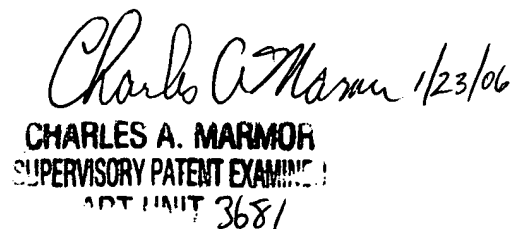 Charles A Marmor 1/23/06
CHARLES A. MARMOR
SUPERVISORY PATENT EXAMINER
ART UNIT 3681